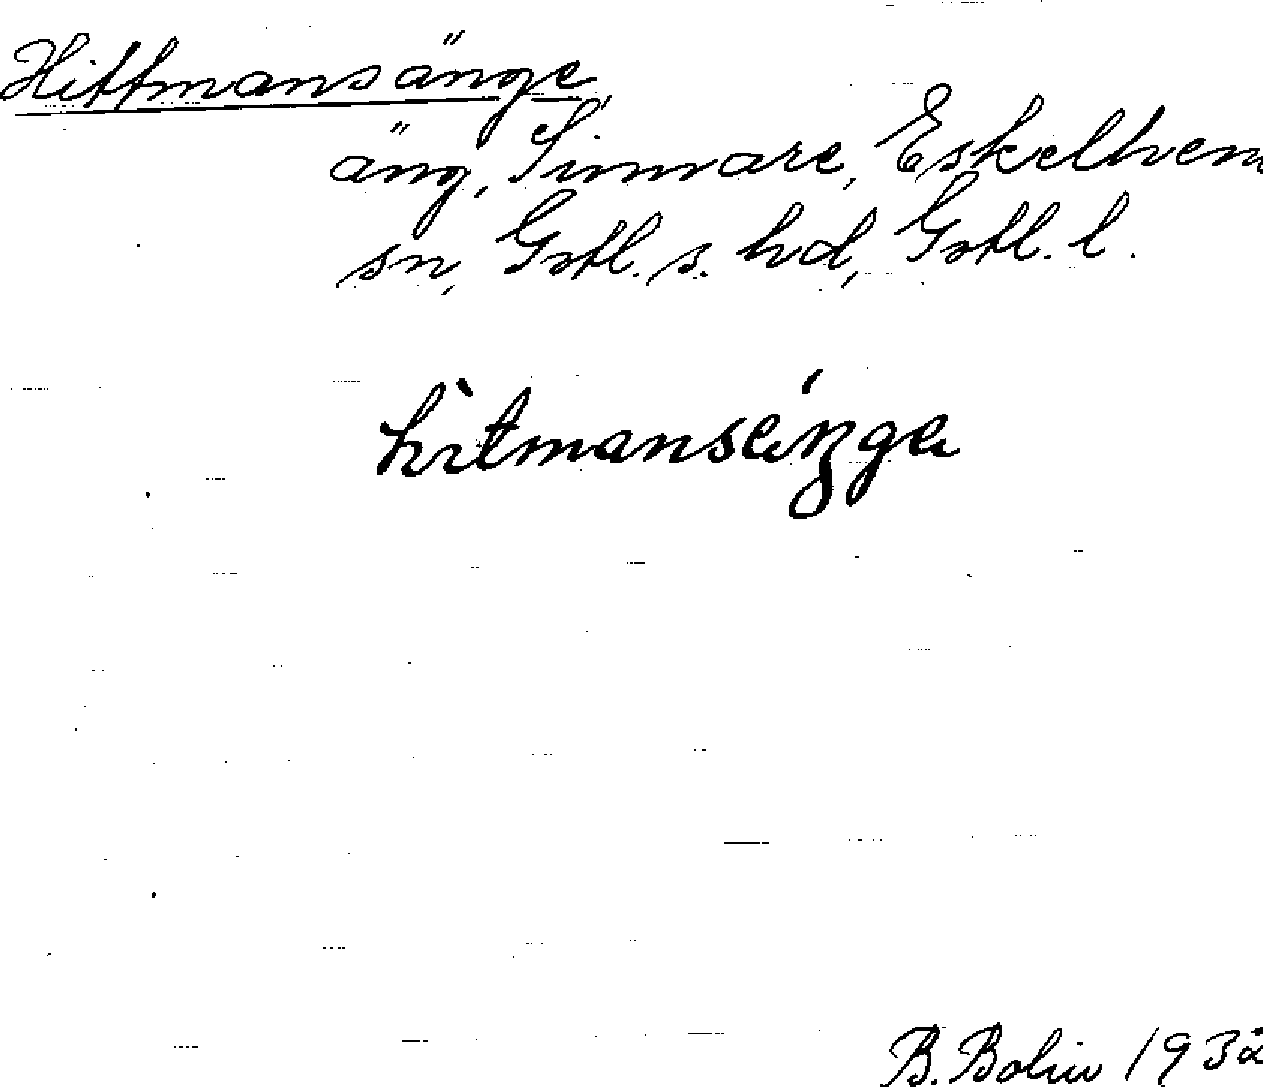 Hittmansänge
äng, Simmare, Eskelhem
sn, Gotl. s. hd, Gotl. l.
hìtmansäŋgä
B. Bolin 1932